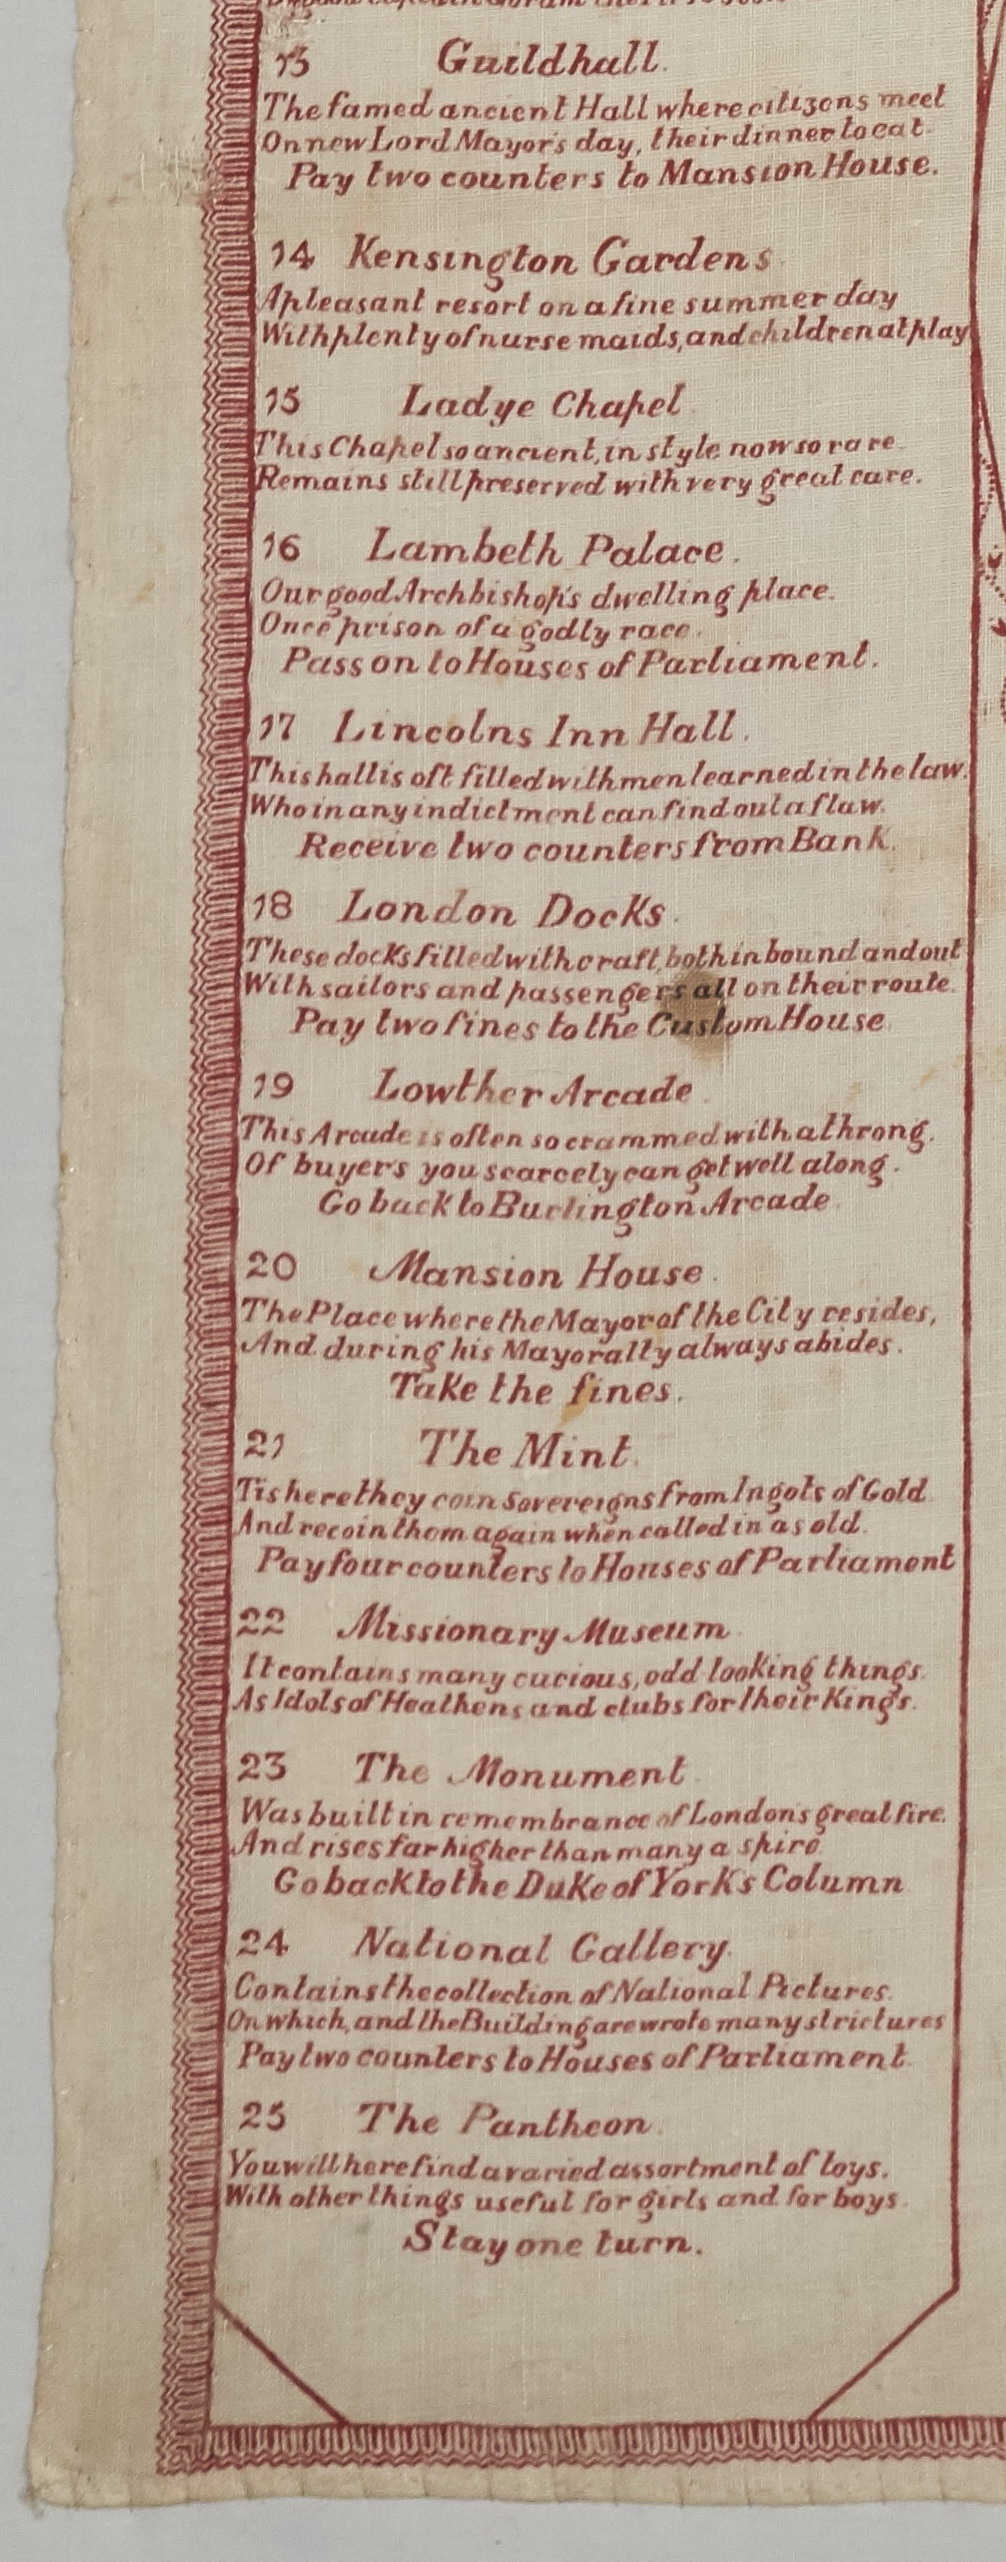 13 Guildhall.
The famed ancient Hall where citizens meet
On new Lord Mayor's day, their dinner to eat.
Pay two counters to Mansion House.
14 Kensington Gardens.
A pleasant resort on a fine summer day
With plenty of nurse maids, and children at play
15 Ladye Chapel
This Chapel so ancient, in style now so rare.
Remains still preserved with very great care.
16 Lambeth Palace.
Our good Archbishop's dwelling place.
Once prison of a godly race.
Pass on to Houses of Parliament.
17 Lincolns Inn Hall.
This hall is oft filled with men learned in the law.
Who in any indictment can find out a flaw.
Receive two counters from Bank.
18 London Docks.
These docks filled with craft, both in bound and out
With sailors and passengers all on their route.
Pay two fines to the Custom House.
19 Lowther Arcade.
This Arcade is often so crammed with a throng.
Of buyers you scarcely can get well along.
Go back to Burlington Arcade.
20 Mansion House.
The Place where the Mayor of the City resides,
And during his Mayoralty always abides.
Take the fines.
21 The Mint.
Tis here they coin Sovereigns from Ingots of Gold.
And recoin them again when called in as old.
Pay four counters to Houses of Parliament
22 Missionary Museum.
It contains many curious, odd looking things.
As Idols of Heathens and clubs for their Kings.
23 The Monument
Was built in remembrance of London's great fire.
And rises far higher than many a spire
Go back to the Duke of York's Column
24 National Gallery.
Contains the collection of National Pictures.
On which, and the Building are wrote many strictures
Pay two counters to Houses of Parliament.
25 The Pantheon.
You will here find a varied assortment of toys.
With other things useful for girls and for boys.
Stay one turn.